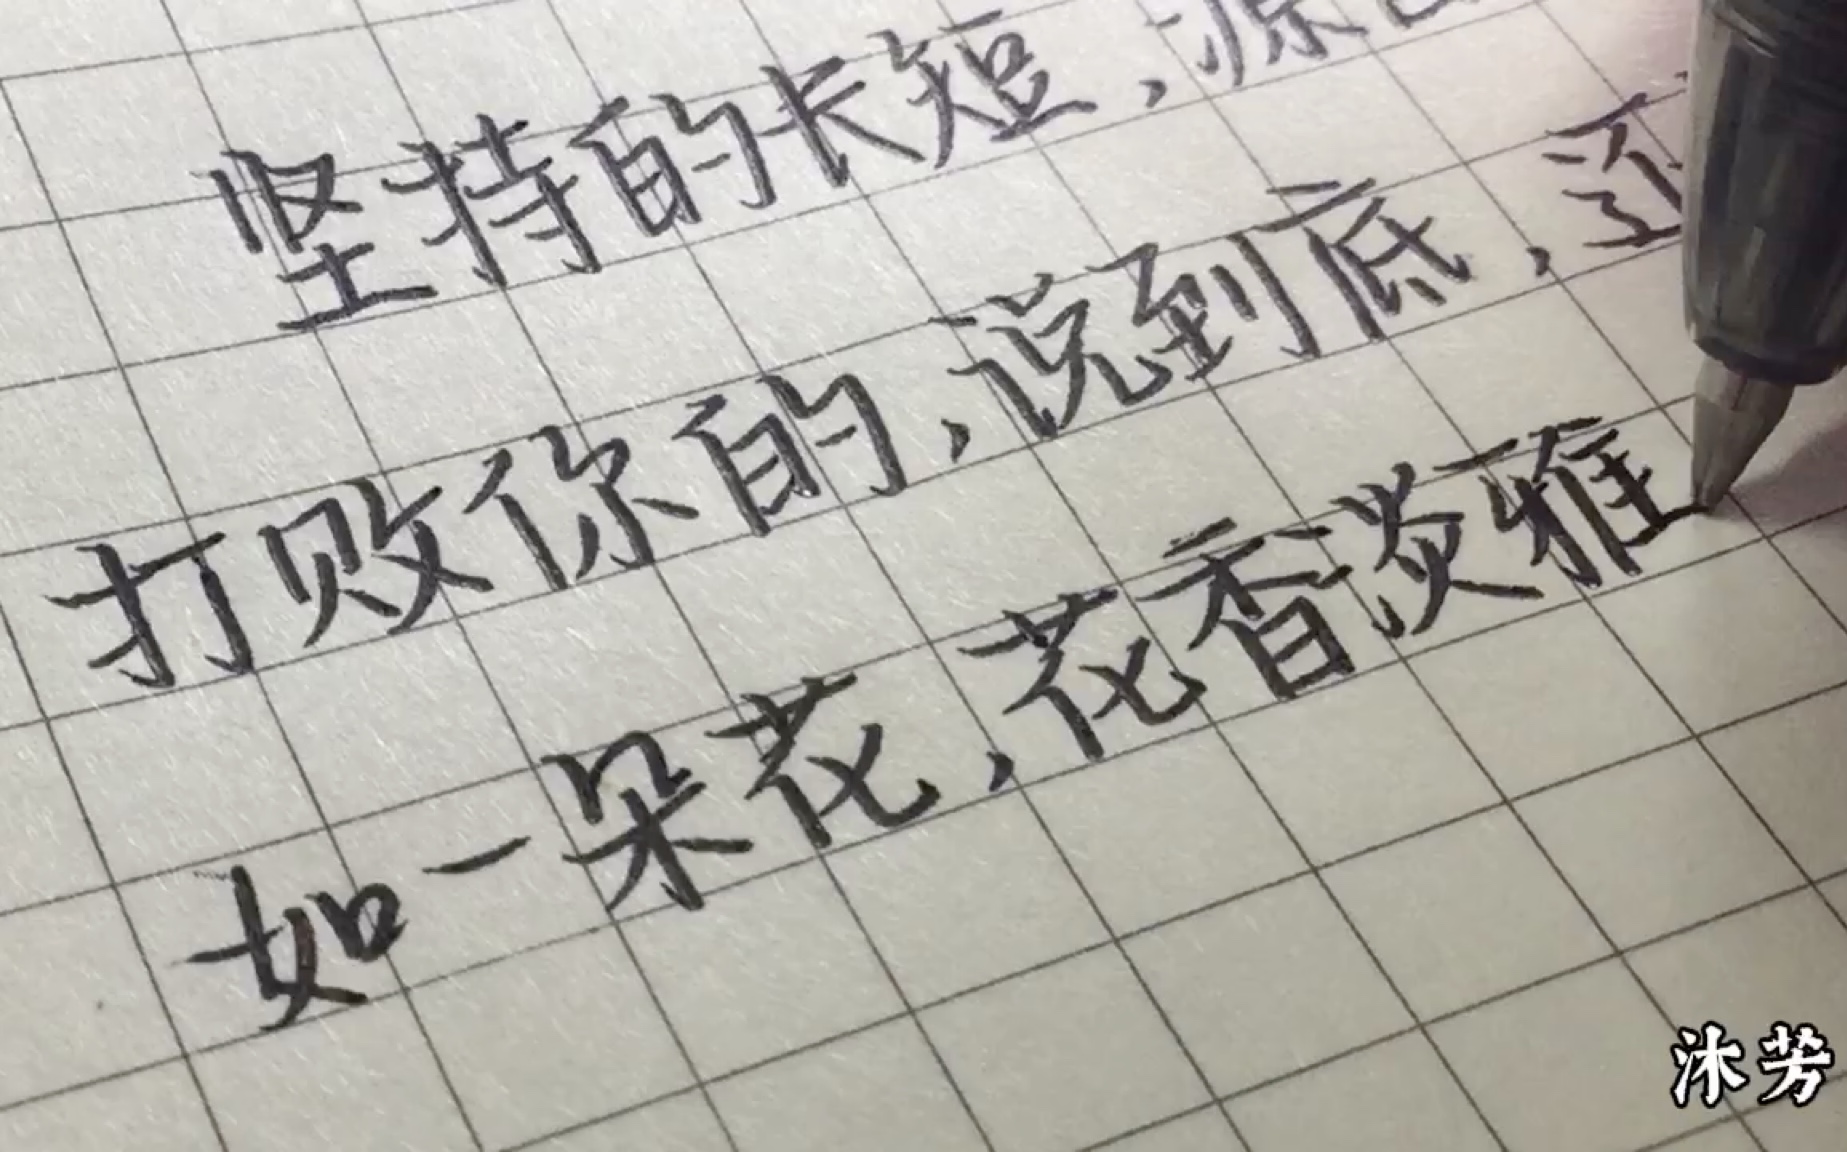 坚持的长短，源
打败你的，说到底，还
如一朵花，花香淡雅
沐芳